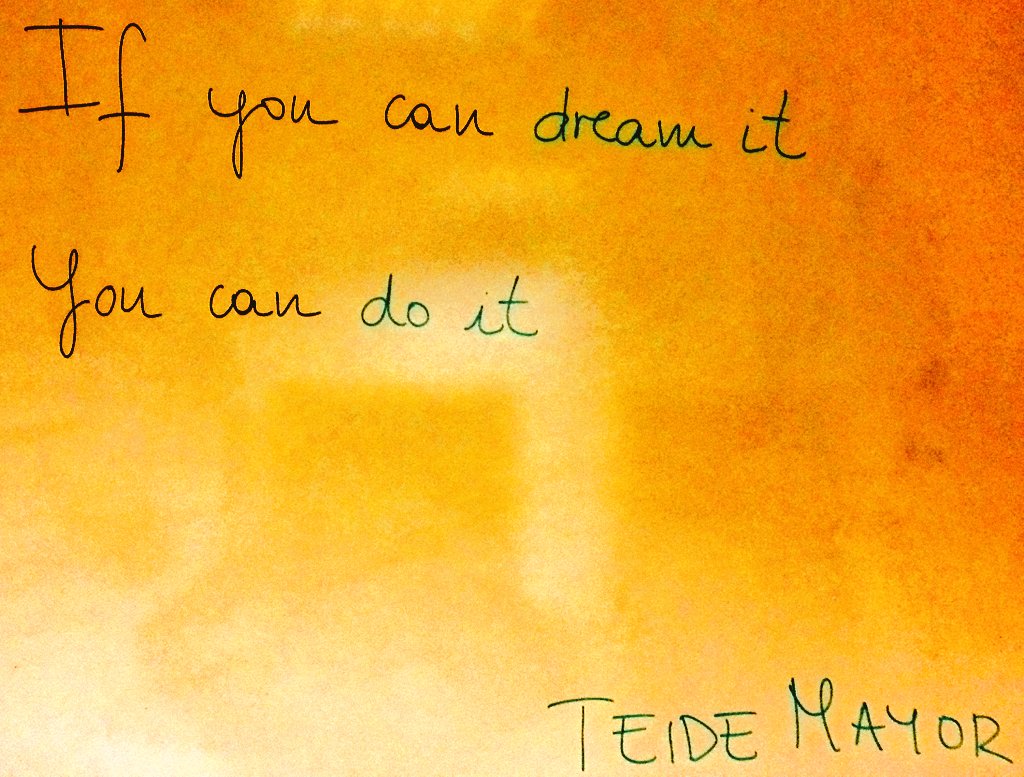 If you can dream it
You can do it
TEIDE MAYOR